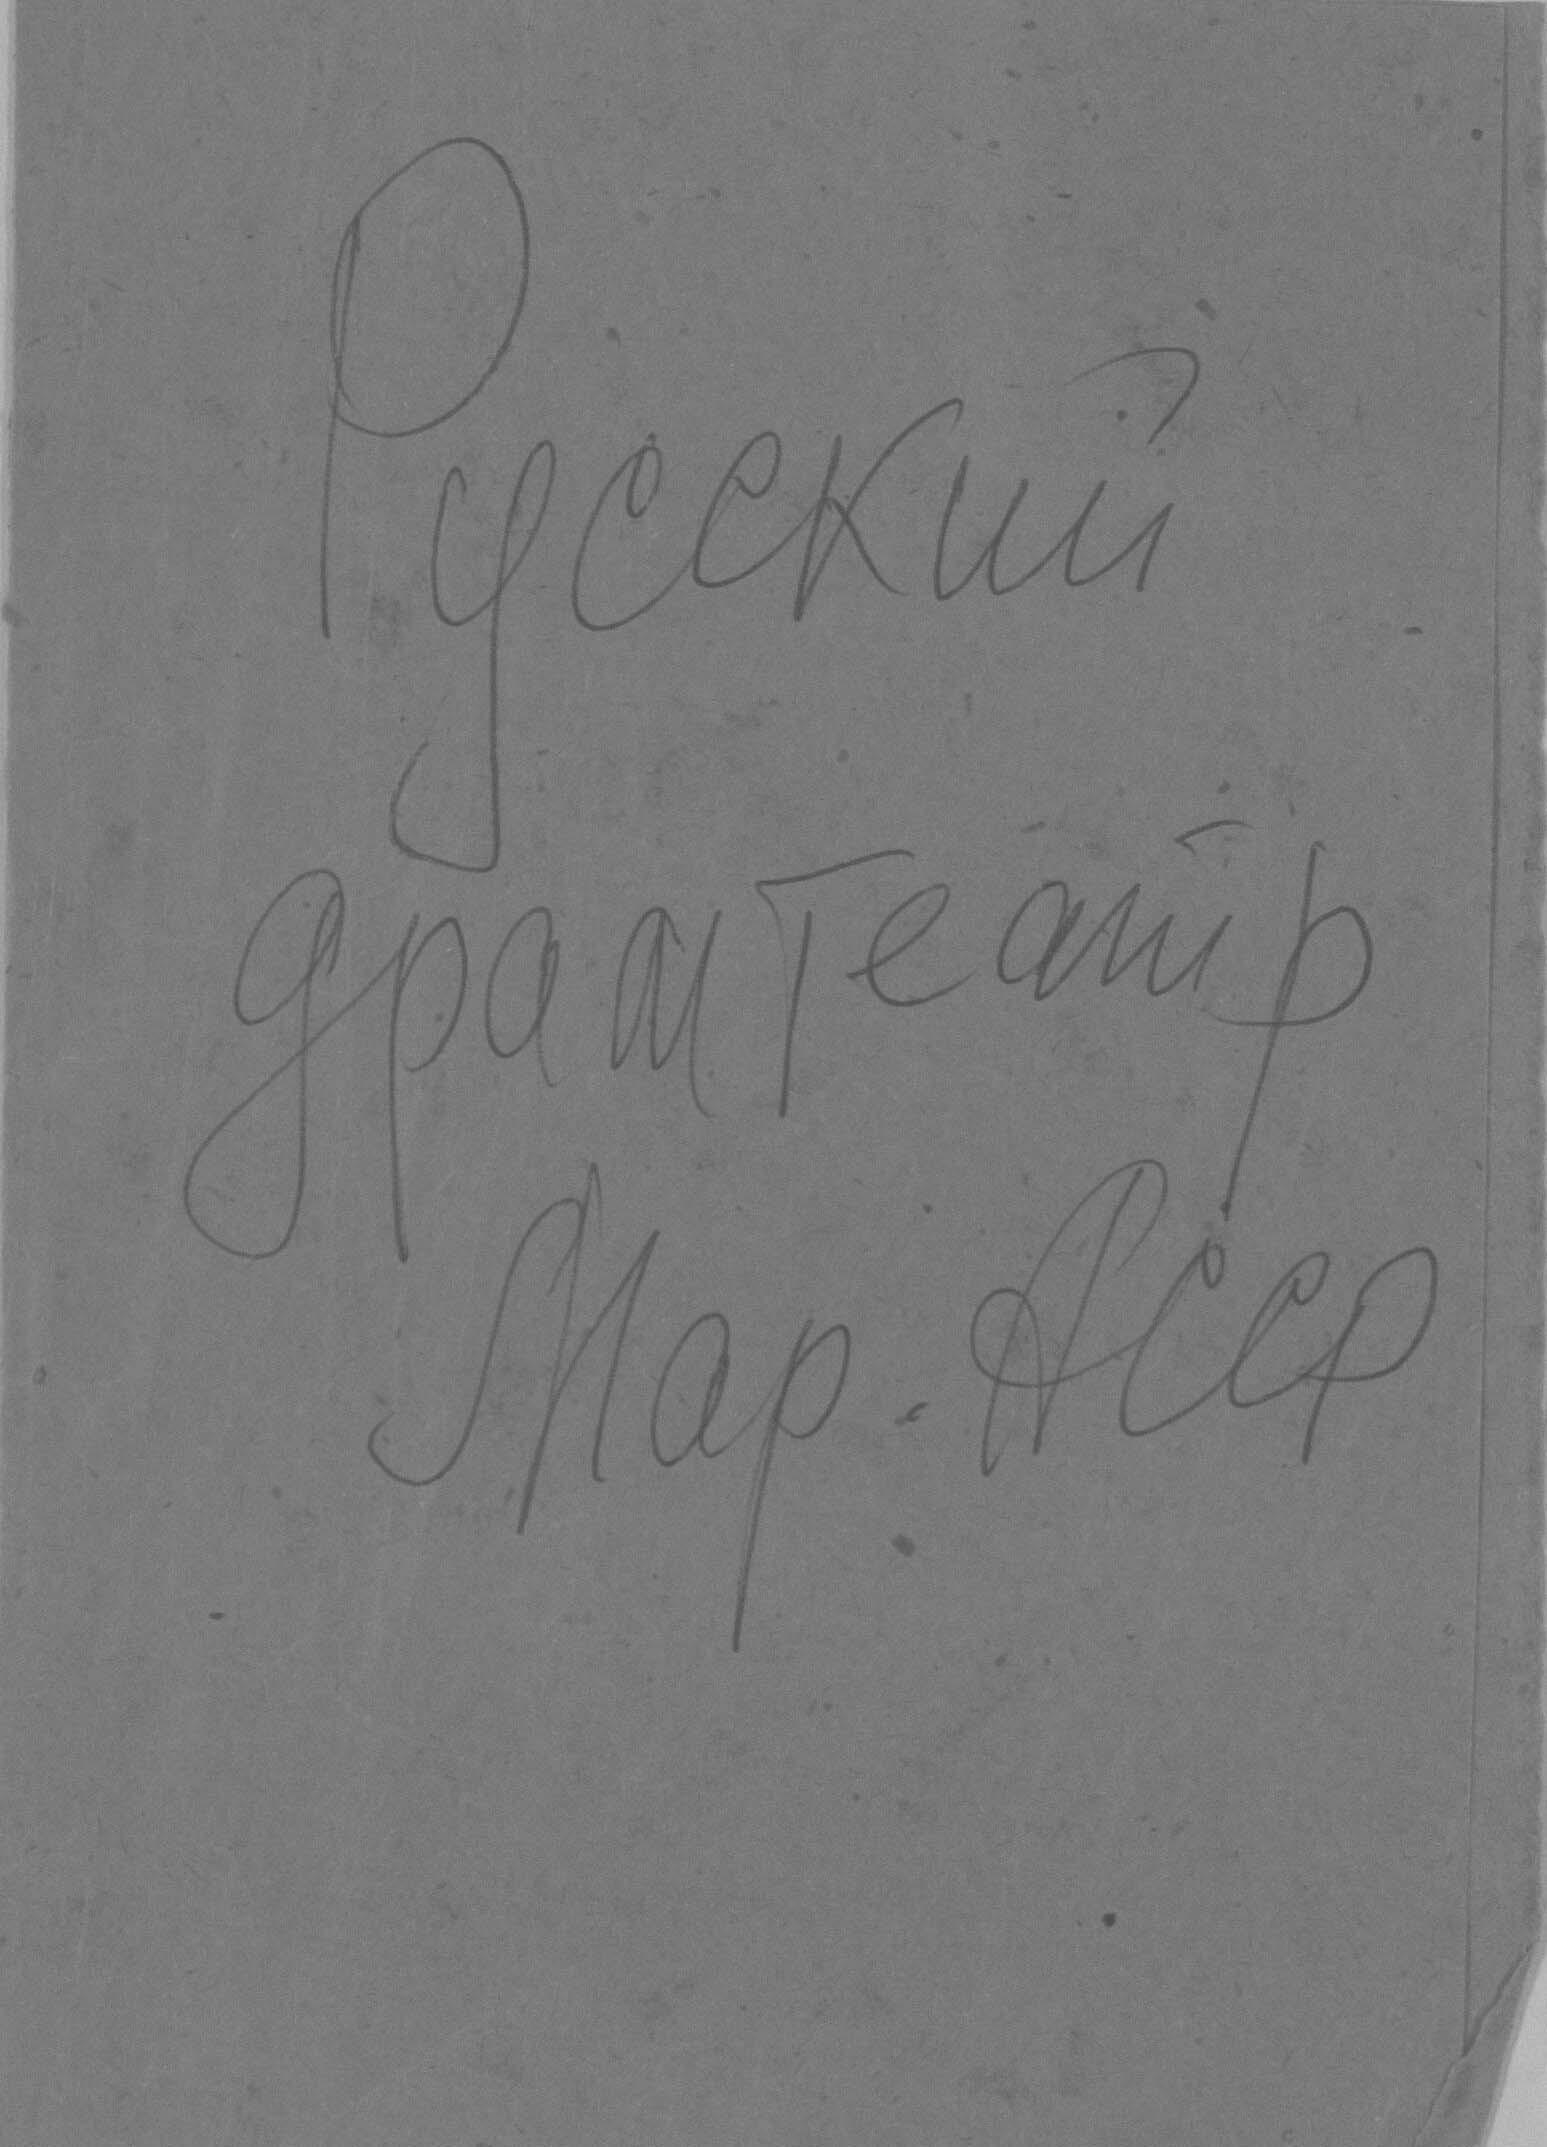 Русский
драмтеатр
Мар. АССР